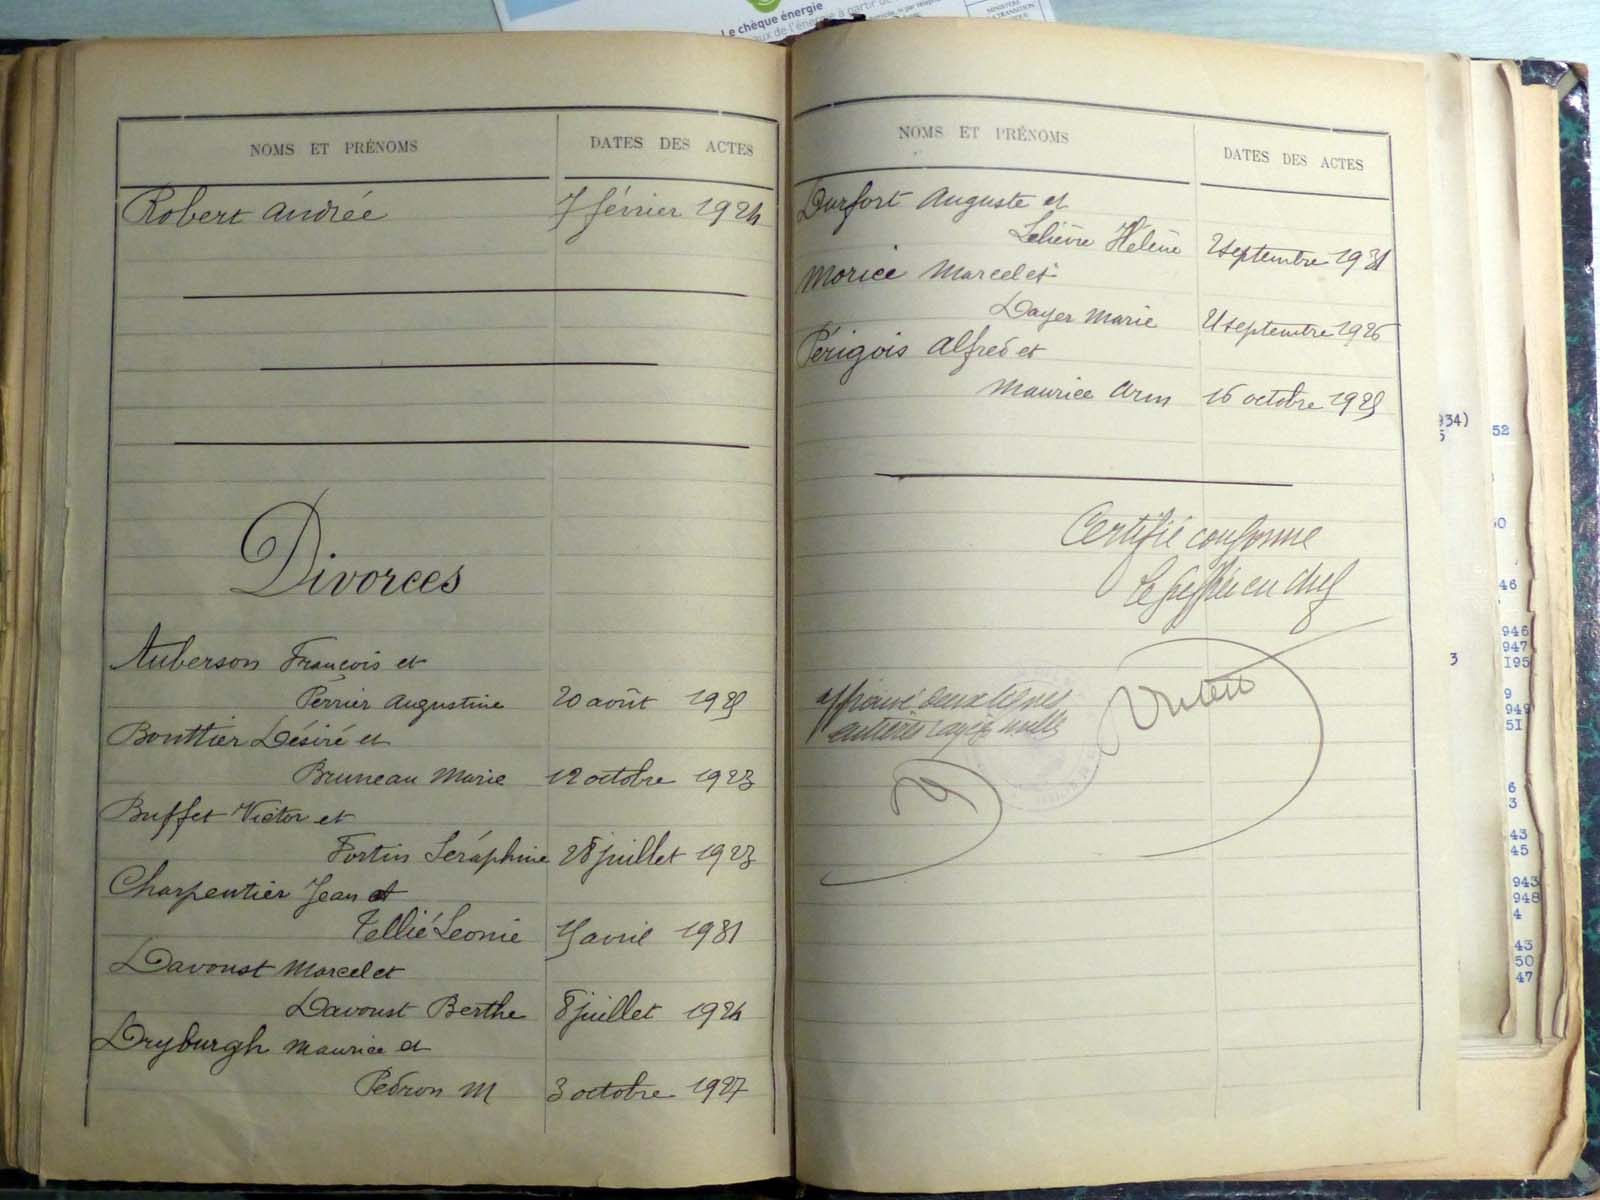 Le chèque énergie
NOMS ET PRÉNOMS
DATES DES ACTES
Robert Andrée
7 février 1924
Divorces
Auberson François et
Perrier Augustine
20 août 1925
Bouttier Désiré et
Bruneau Marie
12 octobre 1923
Buffet Victor et
Fortin Séraphine
28 juillet 1923
Charpentier Jean et
Tellié Léonie
15 avril 1931
Davoust Marcel et
Davoust Berthe
8 juillet 1924
Dryburgh Maurice et
Pedron M
3 octobre 1927
NOMS ET PRÉNOMS
DATES DES ACTES
Durfort Auguste et
Lelièvre Hélène
2 septembre 1931
Morice Marcel et
Dayer Marie
21 septembre 1926
Périgois Alfred et
Maurice Arm
16 octobre 1925
Certifié conforme
Le greffier en chef
approuvé deux lignes
entières rayées nulles
934)
5
52
46
946
947
3
195
9
949
51
6
3
43
45
943
948
4
43
50
47